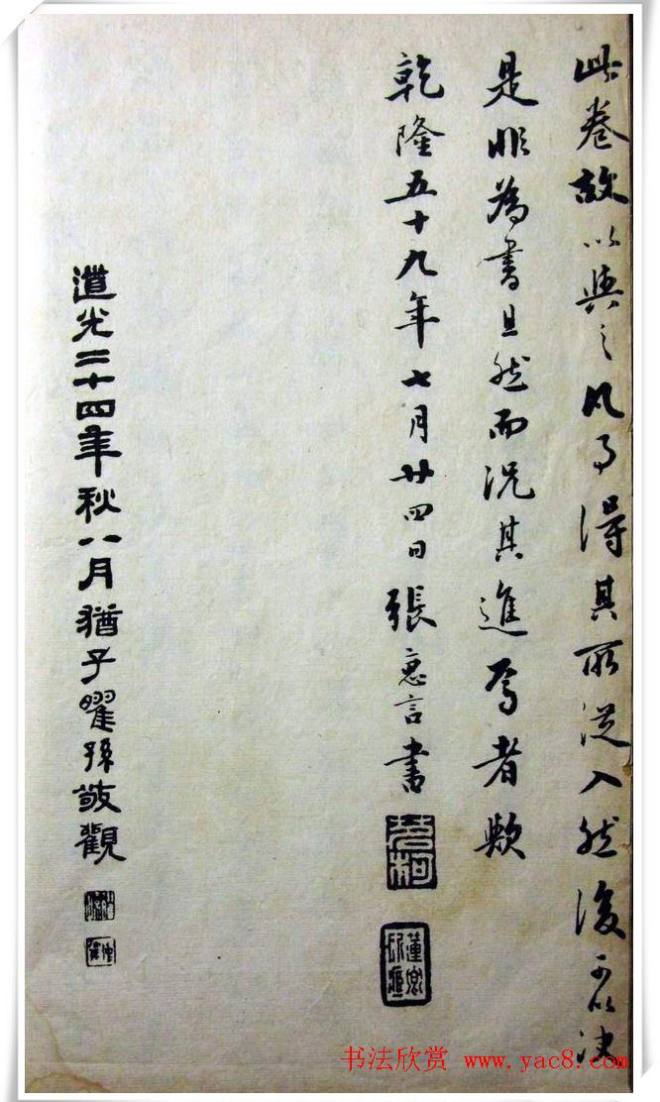 此卷故以與之凡事得其所從入然後可以决
是非為書且然而况其進焉者歟
乾隆五十九年七月廿四日張惠言書
茗柯
道光二十四年秋八月猶子曜孫敬觀
书法欣赏 www.yac8.com